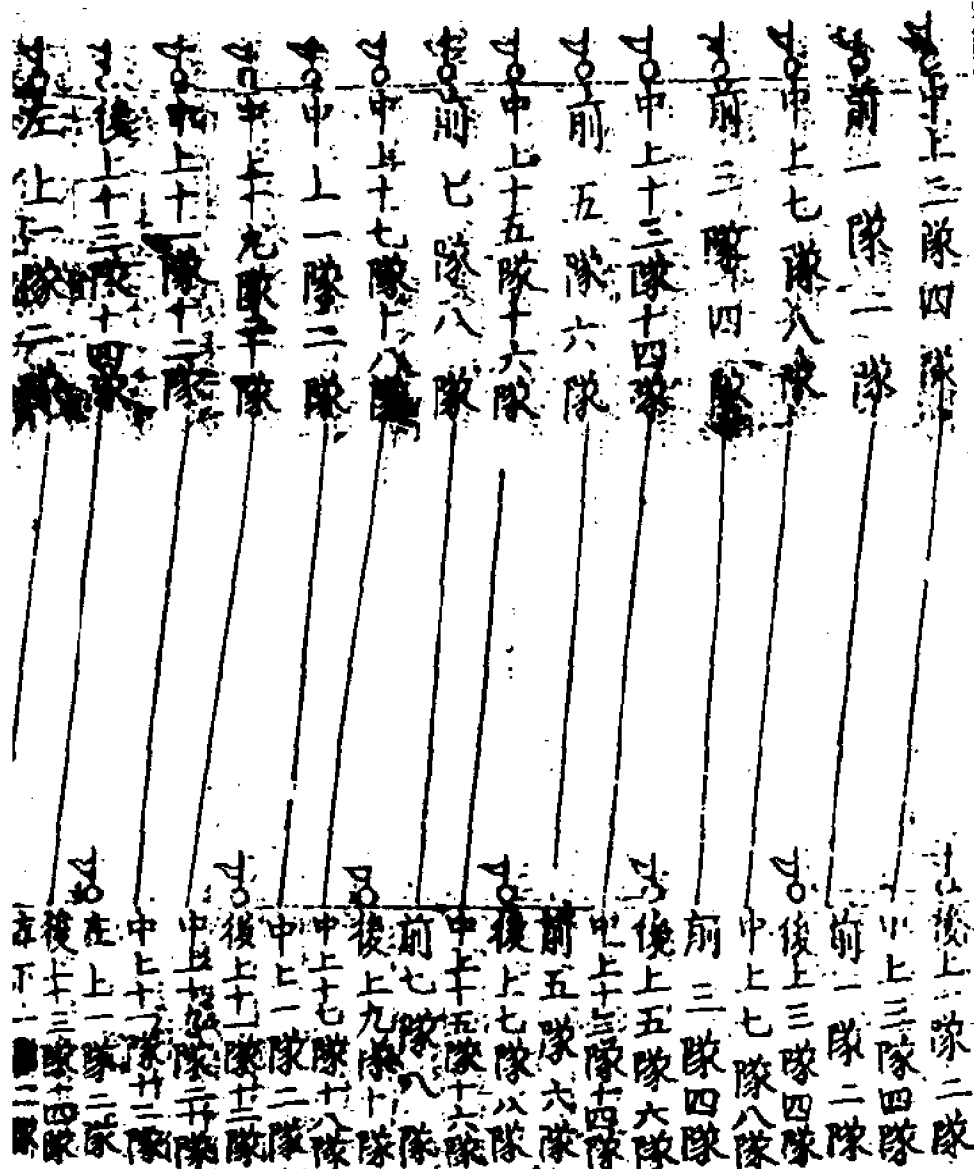 中上三隊四隊
前一隊二隊
中上七隊八隊
前三隊四隊
中上十三隊十四隊
前五隊六隊
中上十五隊十六隊
前七隊八隊
中上十七隊十八隊
中上一隊二隊
中上十九隊二十隊
上十一隊十二隊
後上十三隊十四隊
左上一隊二隊
後上一隊二隊
中上三隊四隊
前一隊二隊
後上三隊四隊
中上七隊八隊
前三隊四隊
後上五隊六隊
中上十三隊十四隊
前五隊六隊
後上七隊八隊
中上十五隊十六隊
前七隊八隊
後上九隊十隊
中上十七隊十八隊
中上一隊二隊
後上十一隊十二隊
中上十九隊二十隊
中上十一隊廿二隊
左上一隊二隊
後上十三隊十四隊
左下一隊二隊